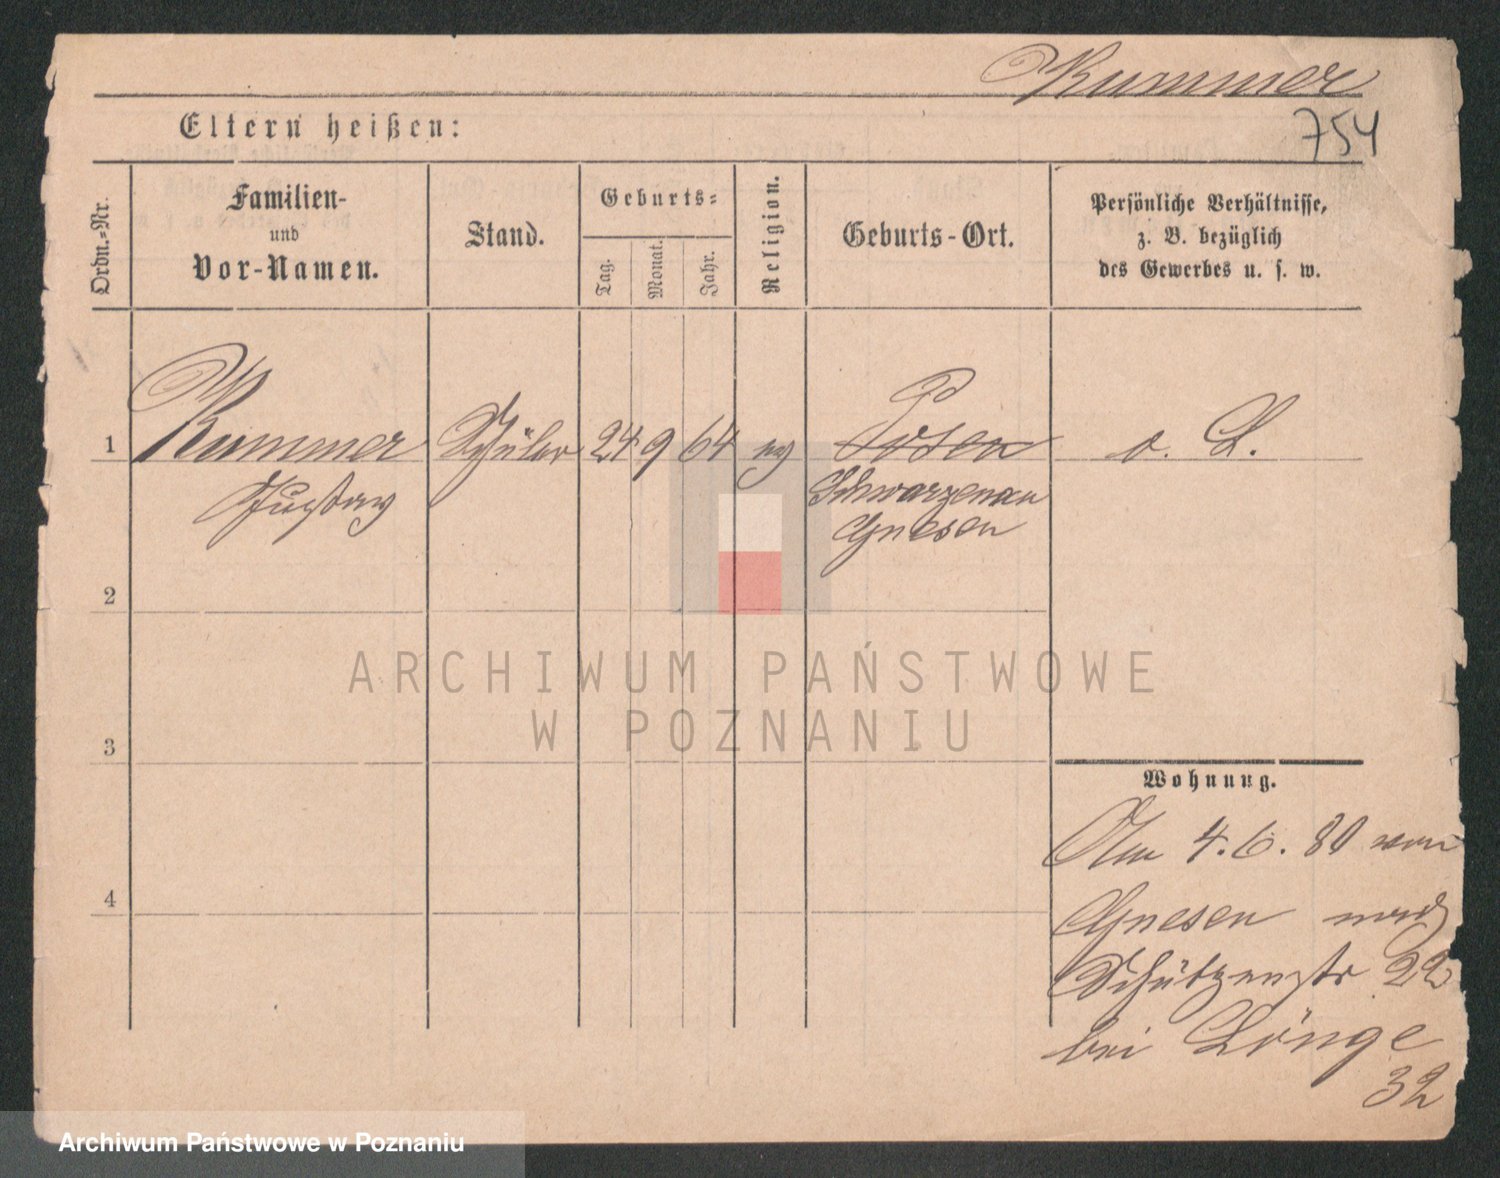 Kummer
754
Eltern heißen:
Ordn.-Nr.
Familien-
und
Vor-Namen.
Stand.
Geburts-
Tag.
Monat.
Jahr.
Religion.
Geburts-Ort.
Persönliche Verhältnisse,
z. B. bezüglich
des Gewerbes u. s. w.
1 Kummer Schüler 24 9 64 ev Posen o. L.
Gustav Schwarzenau
Gnesen
2
3
4
Wohnung.
Am 4.6.80 von
Gnesen nach
Schützenstr 22
bei Lönge
32
ARCHIWUM PAŃSTWOWE
W POZNANIU
Archiwum Państwowe w Poznaniu